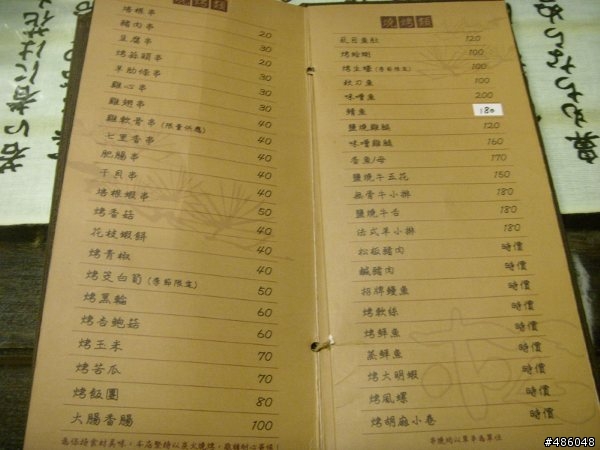 燒烤類
培根串
豬肉串 20
豆腐串 30
烤蒜頭串 20
羊肋條串 30
雞心串 30
雞翅串 30
雞軟骨串(限量供應) 40
七里香串 40
肥腸串 40
干貝串 40
培根蝦串 50
烤香菇 40
花枝蝦餅 40
烤青椒 40
烤筊白筍(季節限定) 50
烤黑輪 60
烤杏鮑菇 60
烤玉米 70
烤苦瓜 70
烤飯團 80
大腸香腸 100
燒烤類
虱目魚肚 120
烤蛤蜊 100
烤生蠔(季節限定) 100
秋刀魚 100
味噌魚 200
鯖魚 180
鹽燒雞腿 120
味噌雞腿 160
香魚/母 170
鹽燒牛五花 150
無骨牛小排 180
鹽燒牛舌 180
法式羊小排 180
松板豬肉 時價
鹹豬肉 時價
招牌鰻魚 時價
烤軟絲 時價
烤鮮魚 時價
蒸鮮魚 時價
烤大明蝦 時價
烤風螺 時價
烤胡麻小卷 時價
串燒烤以單串為單位
#486048